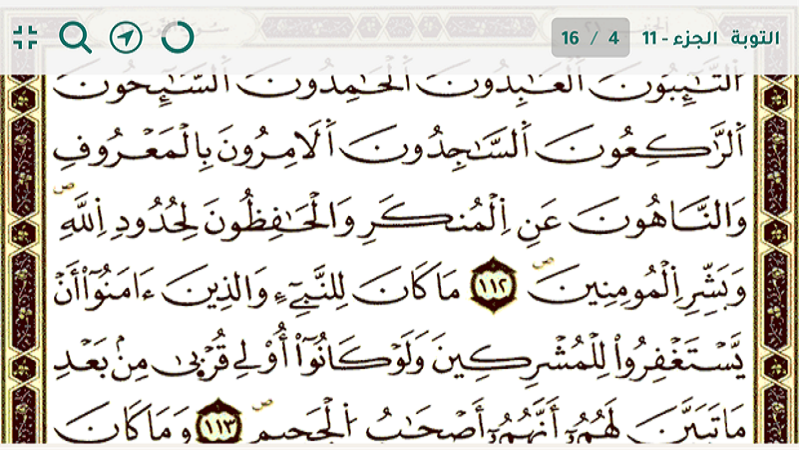 التوبة الجزء - 11 4 / 16
اَ۬لتَّٰٓئِبُونَ اَ۬لْعَٰبِدُونَ اَ۬لْحَٰمِدُونَ اَ۬لسَّٰٓئِحُونَ
اَ۬لرَّٰكِعُونَ اَ۬لسَّٰجِدُونَ اَ۬لَامِرُونَ بِالْمَعْرُوفِ
وَالنَّاهُونَ عَنِ اِ۬لْمُنكَرِ وَالْحَٰفِظُونَ لِحُدُودِ اِ۬للَّهِۖ
وَبَشِّرِ اِ۬لْمُومِنِينَۖ ١١٢ مَا كَانَ لِلنَّبِيٓءِ وَالذِينَ ءَامَنُوٓاْ أَنْ
يَّسْتَغْفِرُواْ لِلْمُشْرِكِينَ وَلَوْ كَانُوٓاْ أُوْلِے قُرْب۪يٰ مِنۢ بَعْدِ
مَا تَبَيَّنَ لَهُمُۥٓ أَنَّهُمُۥٓ أَصْحَٰبُ اُ۬لْجَحِيمِۖ ١١٣ وَمَا كَانَ